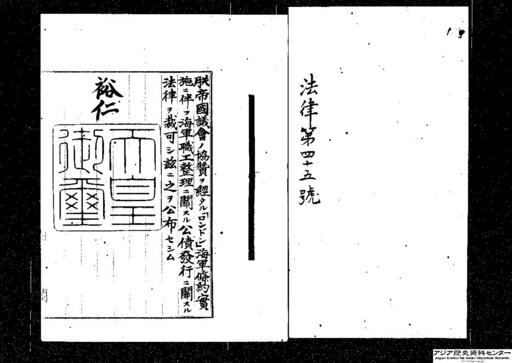 法律第四十五號
朕帝國議會ノ協贊ヲ經タル「ロンドン」海軍條約實
施ニ伴フ海軍職工整理ニ關スル公債發行ニ關スル
法律ヲ裁可シ玆ニ之ヲ公布セシム
裕仁
天皇
御璽
アジア歴史資料センター
Japan Center for Asian Historical Records